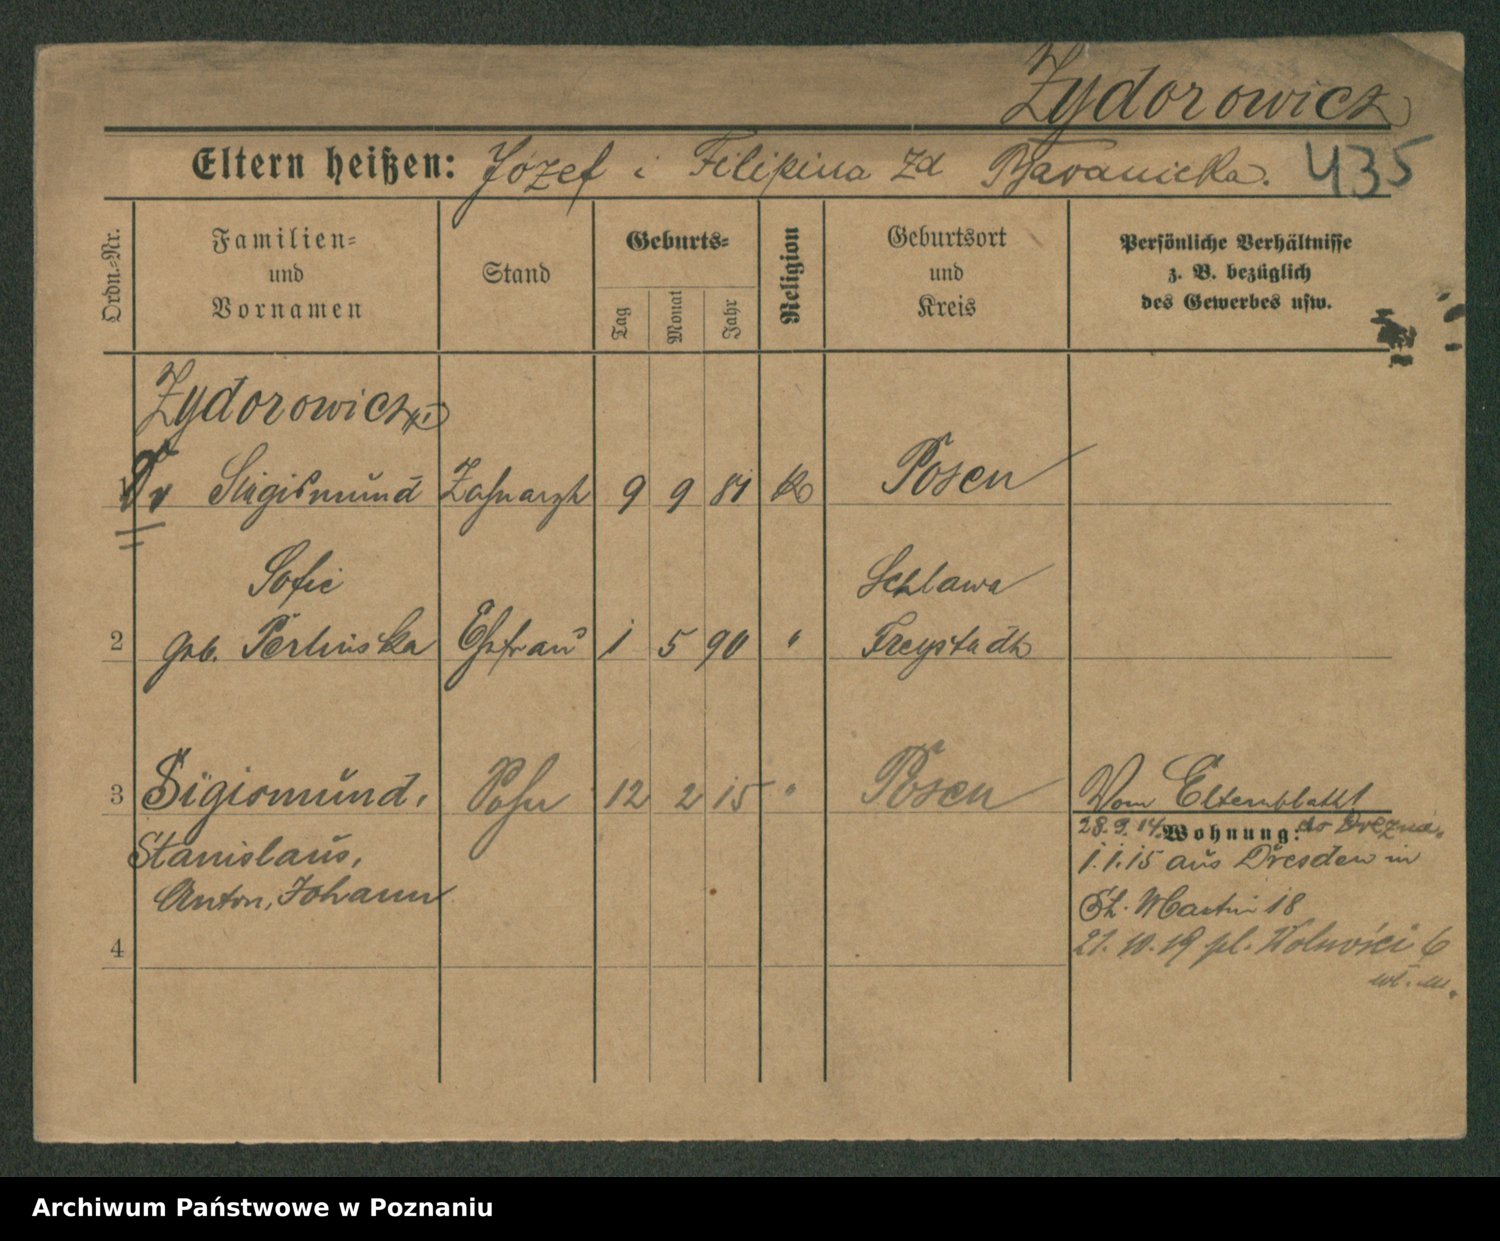 Zydorowicz
Eltern heißen: Józef i Filipina zd Baranicka. 435
Ordn.=Nr.
Familien=
und
Vornamen
Stand
Geburts=
Tag
Monat
Jahr
Religion
Geburtsort
und
Kreis
Persönliche Verhältnisse
z. B. bezüglich
des Gewerbes usw.
Zydorowicz
1 Dr Sigismund Zahnarzt 9 9 81 K Posen
Sofie Schlawa
2 geb. Perlinska Ehefrau 1 5 90 " Freystadt
3 Sigismund, Sohn 12 2 15 " Posen Vom Elternblatt
28.9.14. Wohnung: do Drezna.
Stanislaus, 1.1.15 aus Dresden in
Anton, Johann St. Martin 18
4 21.10.19 pl. Wolności 6
Archiwum Państwowe w Poznaniu